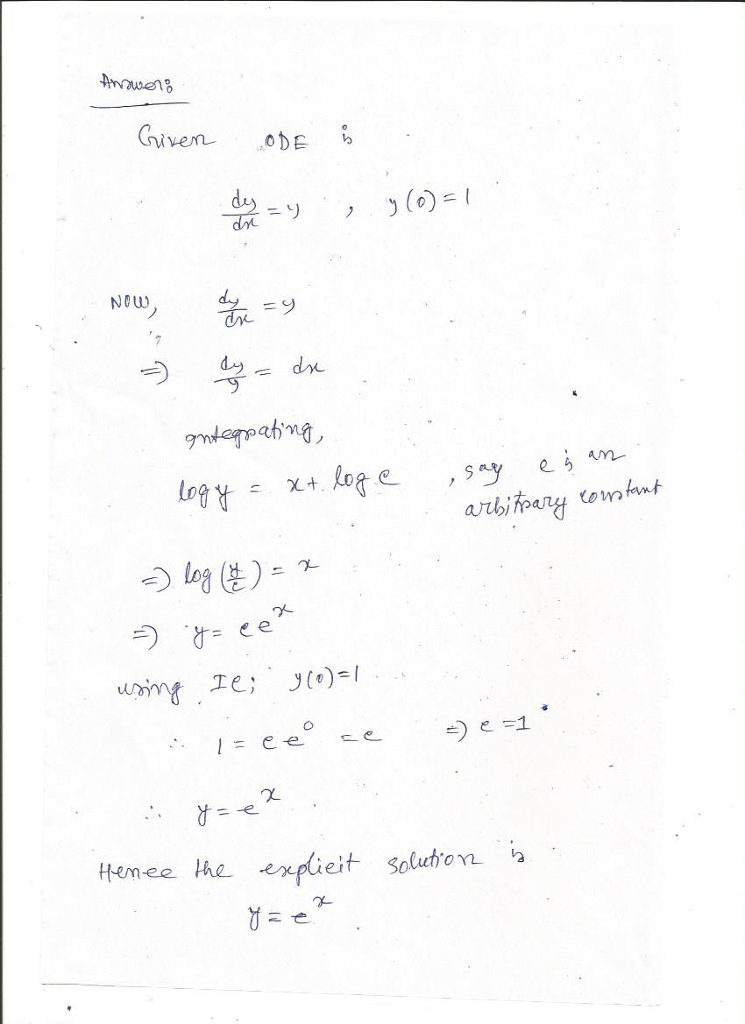 Answer:
Given ODE is
dy/dx = y , y(0) = 1
Now, dy/dx = y
⇒ dy/y = dx
Integrating,
log y = x + log c , say c is an
arbitrary constant
⇒ log (y/c) = x
⇒ y = c e^x
using IC; y(0) = 1
∴ 1 = c e^0 = c ⇒ c = 1
∴ y = e^x
Hence the explicit solution is
y = e^x